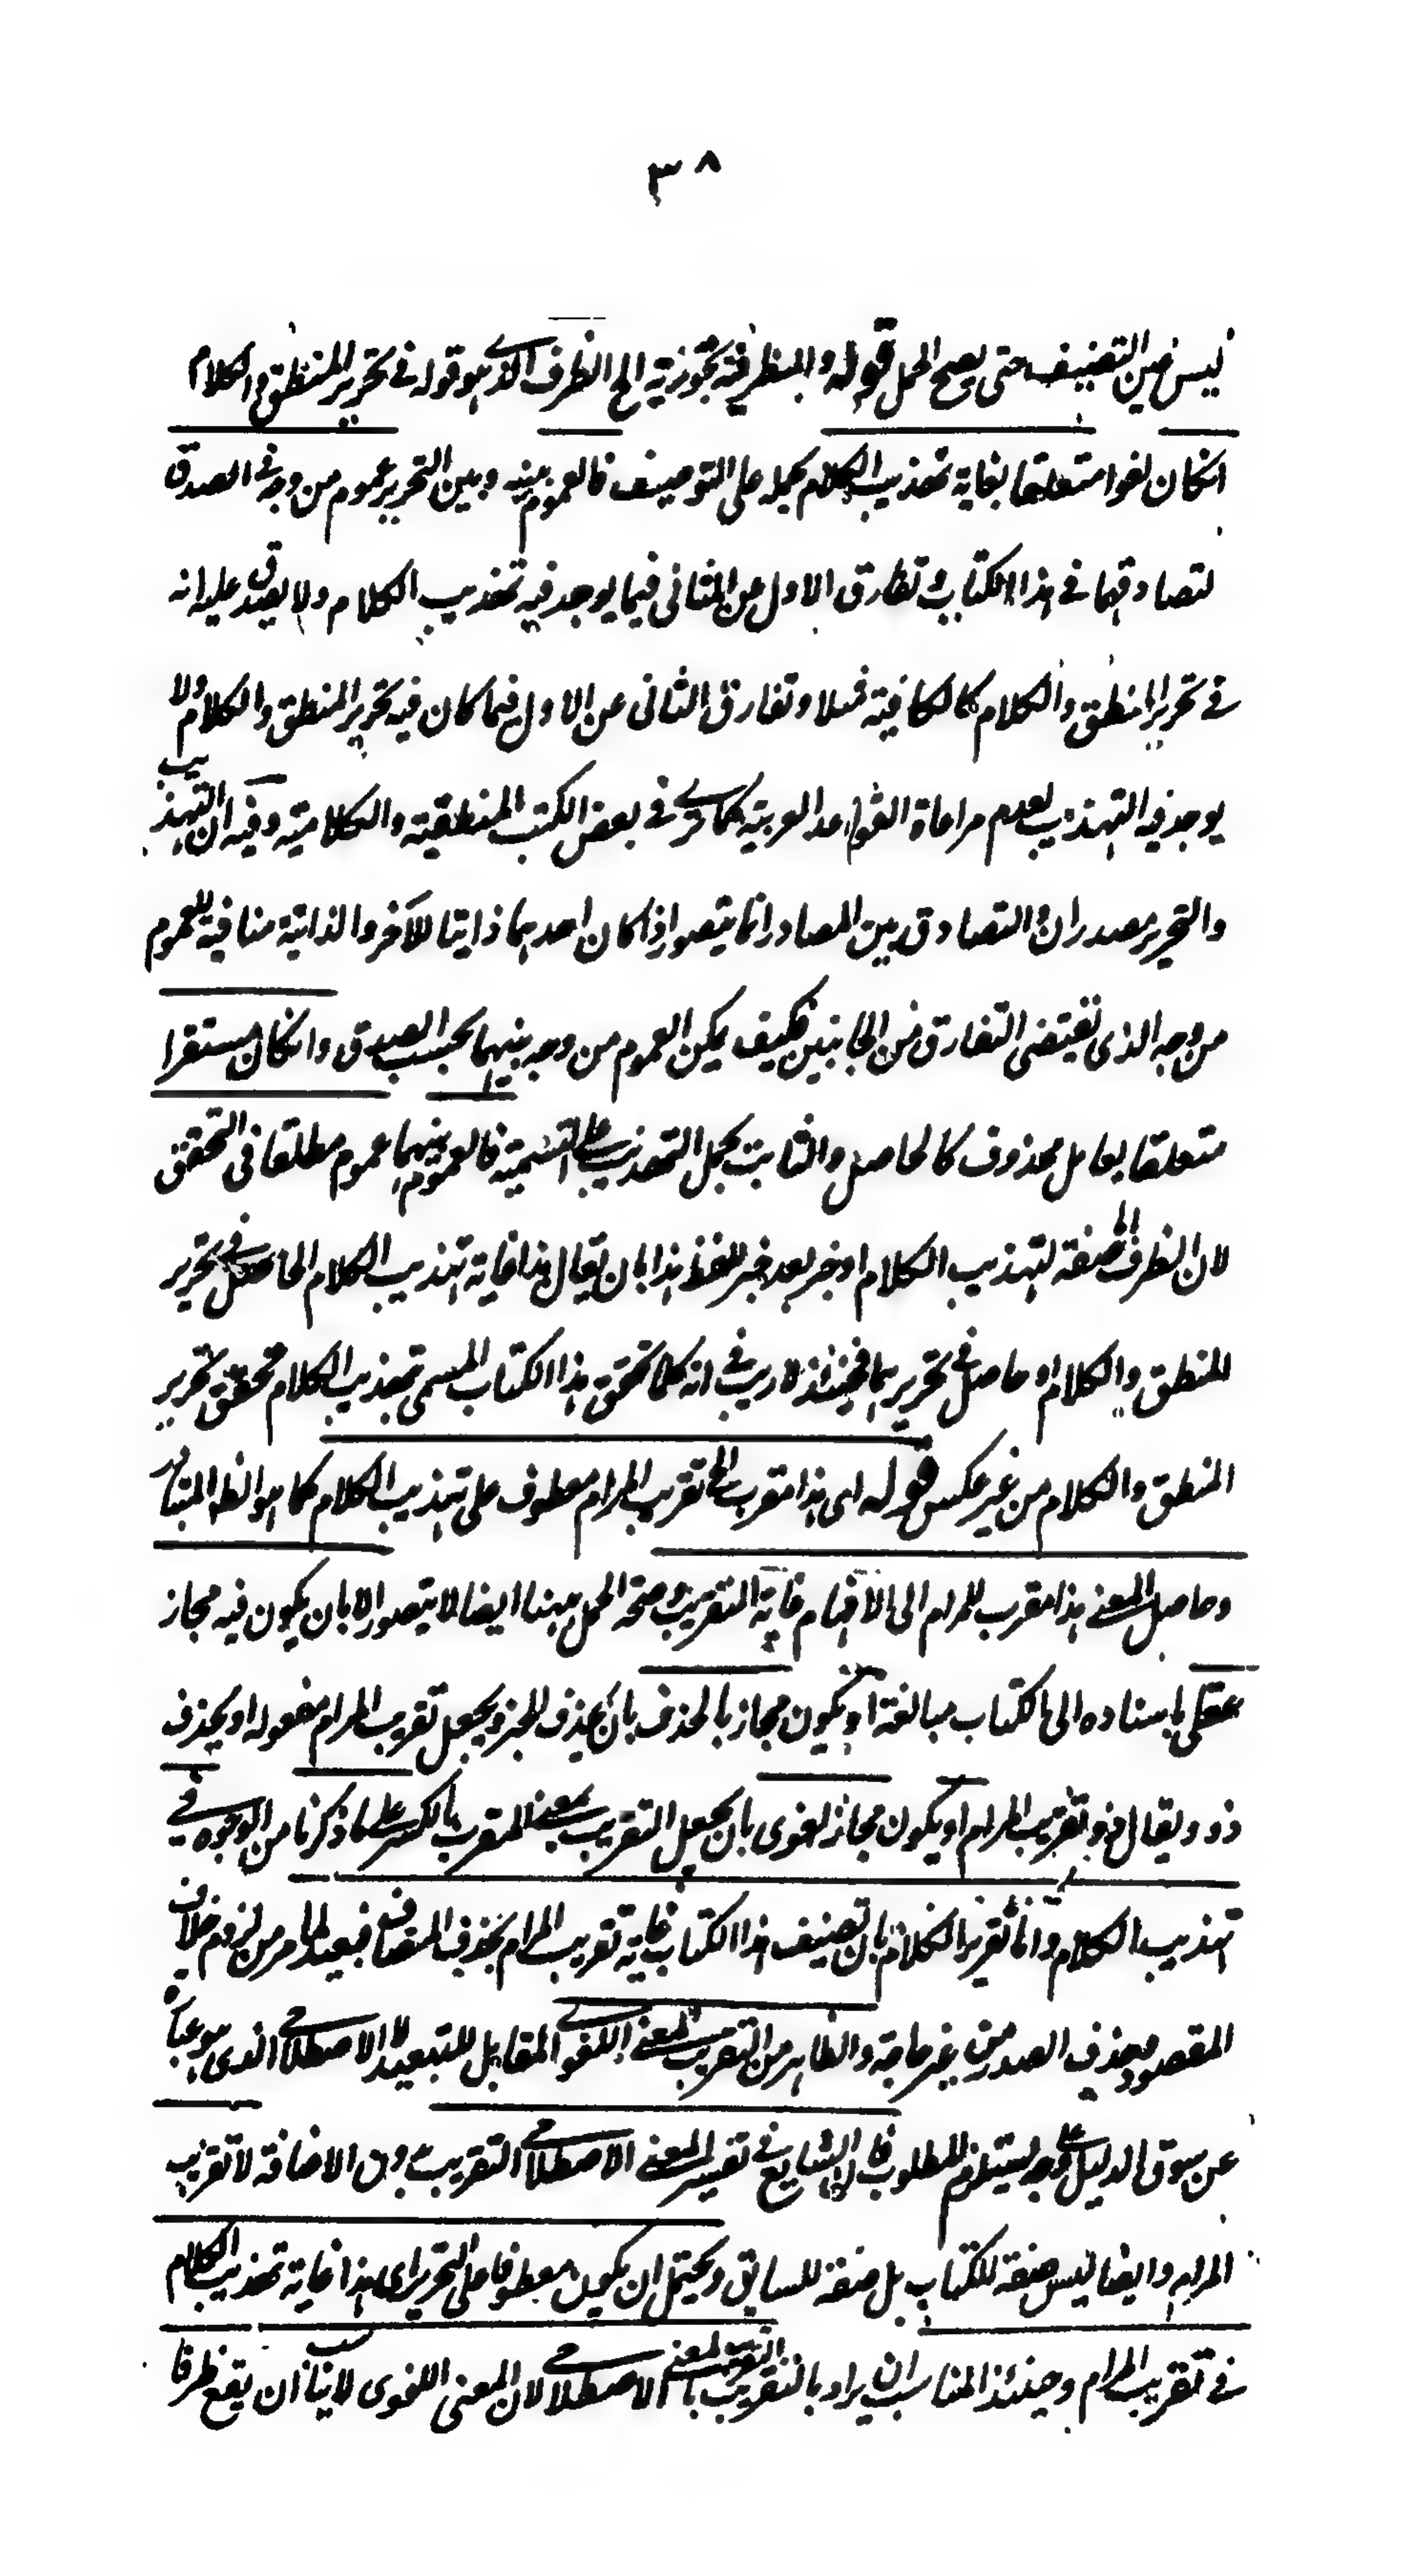 ٣٨
ليس عين التصنيف حتى يصح الحمل قوله والظرفية تجوزية الخ الظرف الذي هو قوله في تحرير المنطق والكلام
انكان لغوا متعلقا بغاية تهذيب الكلام بحمله على التوصيف فالعموم بينه وبين التحرير عموم من وجه في الصدق
لتصادقهما في هذا الكتاب وتفارق الاول عن الثاني فيما يوجد فيه تهذيب الكلام ولا يصدق عليه انه
في تحرير المنطق والكلام كالكافية مثلا وتفارق الثاني عن الاول فيما كان فيه تحرير المنطق والكلام ولا
يوجد فيه التهذيب لعدم مراعاة القواعد العربية كما ترى في بعض الكتب المنطقية والكلامية وفيه ان التهذيب
والتحرير مصدران والتصادق بين المصادر انما يتصور اذا كان احدهما ذاتيا للآخر والذاتية منافية للعموم
من وجه الذي يقتضي التفارق من الجانبين فكيف يمكن العموم من وجه بينهما بحسب الصدق وانكان مستقرا
متعلقا بعامل محذوف كالحاصل والثابت بحمل التهذيب على التسمية فالعموم بينهما عموم مطلقا في التحقق
لان الظرف اما صفة لتهذيب الكلام او خبر بعد خبر للفظ هذا بان يقال هذا غاية تهذيب الكلام الحاصل في تحرير
المنطق والكلام او حاصل في تحريرهما فحينئذ لا ريب في انه كلما تحقق هذا الكتاب المسمى بتهذيب الكلام تحقق تحرير
المنطق والكلام من غير عكس قوله اى هذا مقرب الخ تقريب المرام معطوف على تهذيب الكلام كما هو الظاهر المتبادر
وحاصل المعنى هذا مقرب للمرام الى الافهام غاية التقريب وصحة الحمل ههنا ايضا لا يتصور الا بان يكون فيه مجاز
عقلي باسناده الى الكتاب مبالغة او يكون مجاز بالحذف بان يحذف الخبر ويجعل تقريب المرام مفعوله او يحذف
ذو ويقال ذو تقريب المرام او يكون مجاز لغوى بان يجعل التقريب بمعنى المقرب بالكسر على ما ذكرنا من الوجوه في
تهذيب الكلام واما تقرير الكلام بان تصنيف هذا الكتاب غاية تقريب المرام بحذف المضاف فبعيد لما مر من لزوم خلاف
المقصود وحذف الصدر من غير حاجة والظاهر من التقريب المعنى اللغوي المقابل للتبعيد لا الاصطلاحي الذى هو عبارة
عن سوق الدليل على وجه يستلزم المطلوب فان الشايع في تفسير المعنى الاصطلاحي التقريب بدون الاضافة لا تقريب
المرام وايضا ليس صفة للكتاب بل صفة للسابق ويحتمل ان يكون معطوفا على التحرير اى هذا غاية تهذيب الكلام
في تقريب المرام وحينئذ المناسب ان يراد بالتقريب التقريب بالمعنى الاصطلاحي لان المعنى اللغوى لا يناسب ان يقع ظرفا